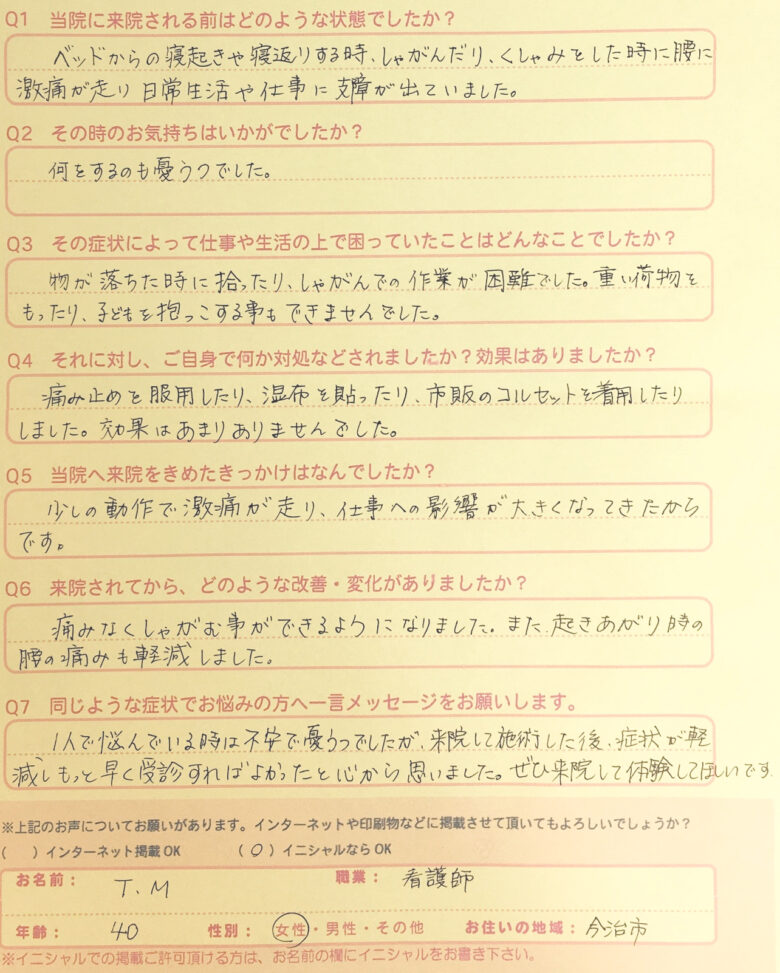 Q1 当院に来院される前はどのような状態でしたか？
ベッドからの寝起きや寝返りする時、しゃがんだり、くしゃみをした時に腰に
激痛が走り日常生活や仕事に支障が出ていました。
Q2 その時のお気持ちはいかがでしたか？
何をするのも憂うつでした。
Q3 その症状によって仕事や生活の上で困っていたことはどんなことでしたか？
物が落ちた時に拾ったり、しゃがんでの作業が困難でした。重い荷物を
もったり、子どもを抱っこする事もできませんでした。
Q4 それに対し、ご自身で何か対処などされましたか？効果はありましたか？
痛み止めを服用したり、湿布を貼ったり、市販のコルセットを着用したり
しました。効果はあまりありませんでした。
Q5 当院へ来院をきめたきっかけはなんでしたか？
少しの動作で激痛が走り、仕事への影響が大きくなってきたから
です。
Q6 来院されてから、どのような改善・変化がありましたか？
痛みなくしゃがむ事ができるようになりました。また、起きあがり時の
腰の痛みも軽減しました。
Q7 同じような症状でお悩みの方へ一言メッセージをお願いします。
1人で悩んでいる時は不安で憂うつでしたが、来院して施術した後、症状が軽
減しもっと早く受診すればよかったと心から思いました。ぜひ来院して体験してほしいです。
※上記のお声についてお願いがあります。インターネットや印刷物などに掲載させて頂いてもよろしいでしょうか？
（　）インターネット掲載OK （○）イニシャルならOK
お名前： T.M 職業： 看護師
年齢： 40 性別： 女性・男性・その他 お住いの地域： 今治市
※イニシャルでの掲載ご許可頂ける方は、お名前の欄にイニシャルをお書き下さい。